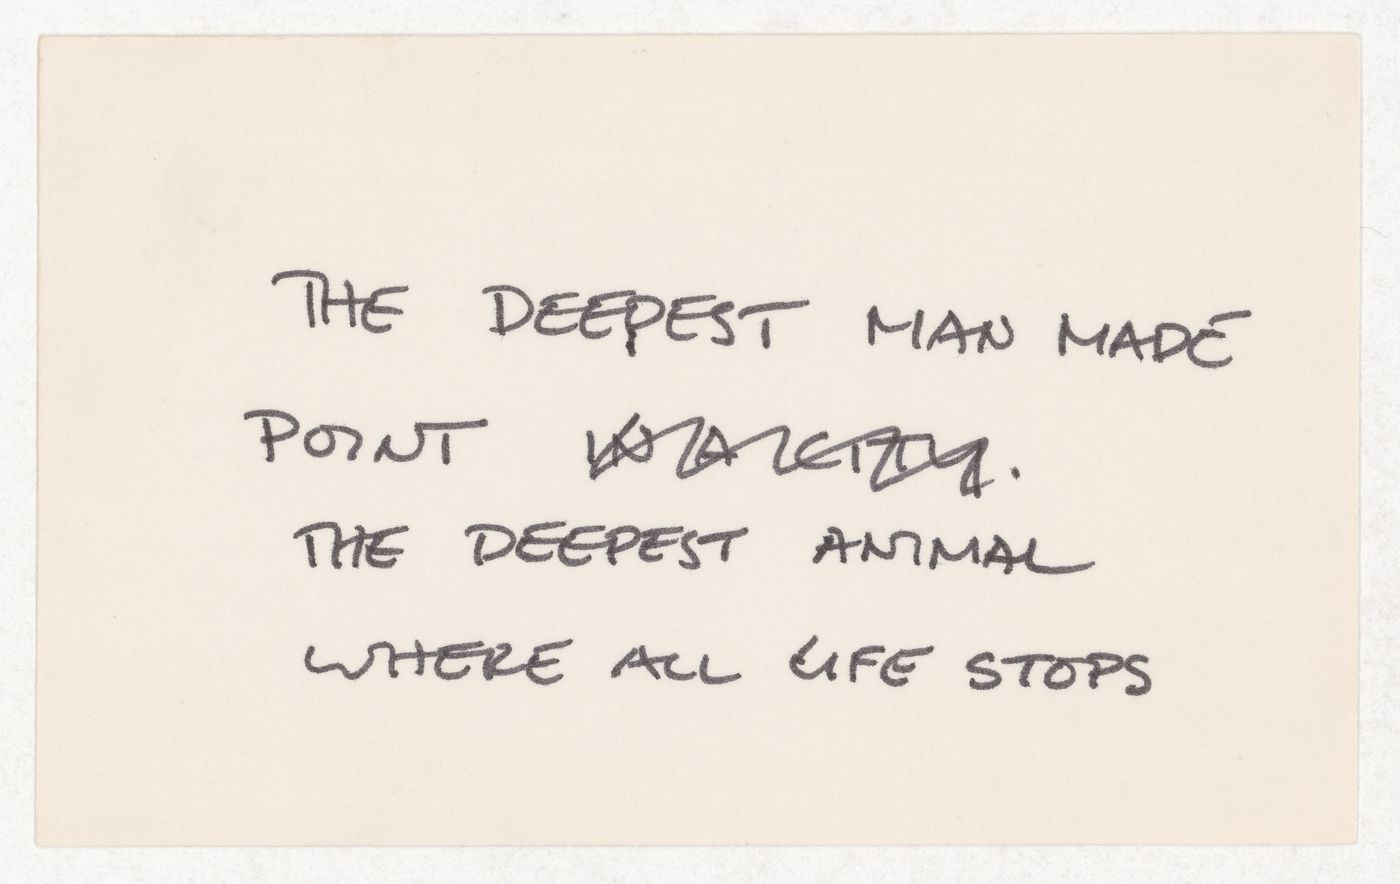 THE DEEPEST MAN MADE
POINT .
THE DEEPEST ANIMAL
WHERE ALL LIFE STOPS